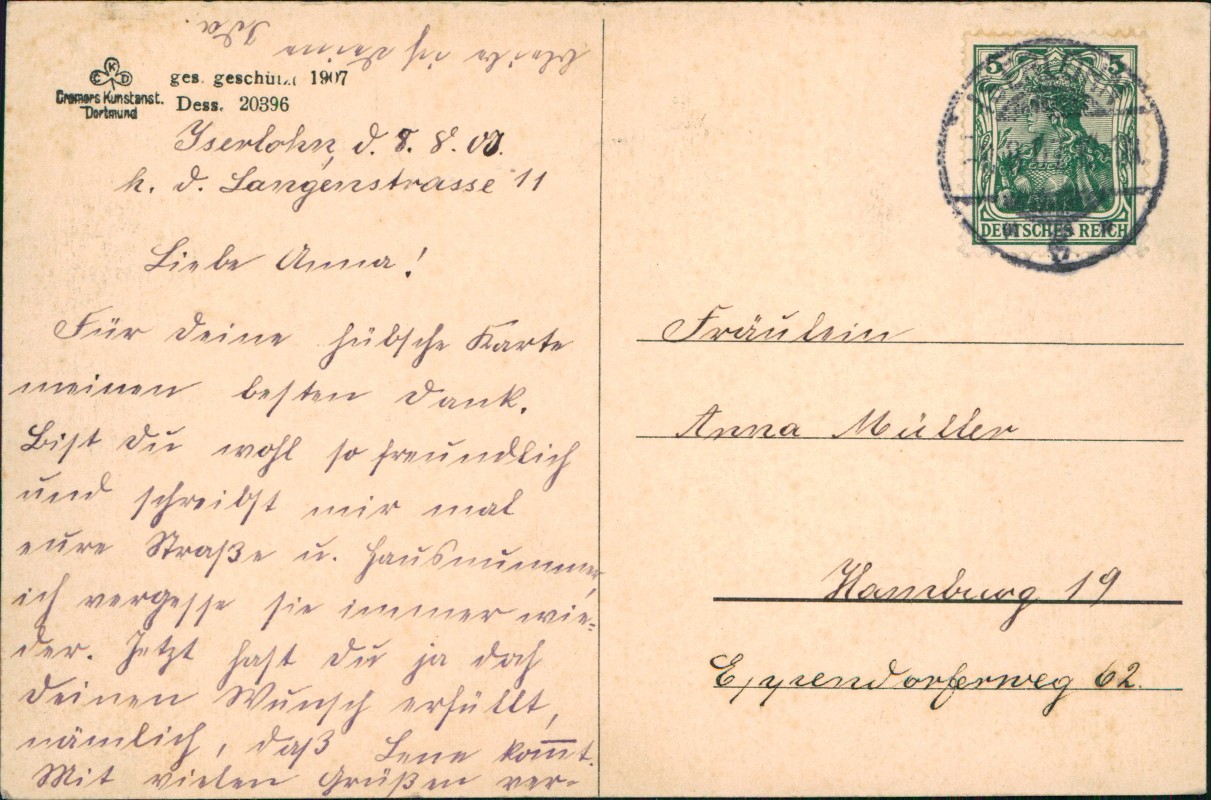 EKD
Cremers Kunstanst.
Dortmund
ges. geschützt 1907
Dess. 20396
Iserlohn, d. 8. 8. 08.
h. d. Langenstrasse 11
Liebe Anna!
Für deine hübsche Karte
meinen besten Dank.
Bist du wohl so freundlich
und schreibst mir mal
eure Straße u. Hausnummer,
ich vergesse sie immer wie-
der. Jetzt hast du ja doch
deinen Wunsch erfüllt,
nämlich, daß Lene kom̅t.
Mit vielen Grüßen ver-
bleibe ich deine
Ida.
5 5
DEUTSCHES REICH
Fräulein
Anna Müller
Hamburg 19
Eppendorferweg 62.